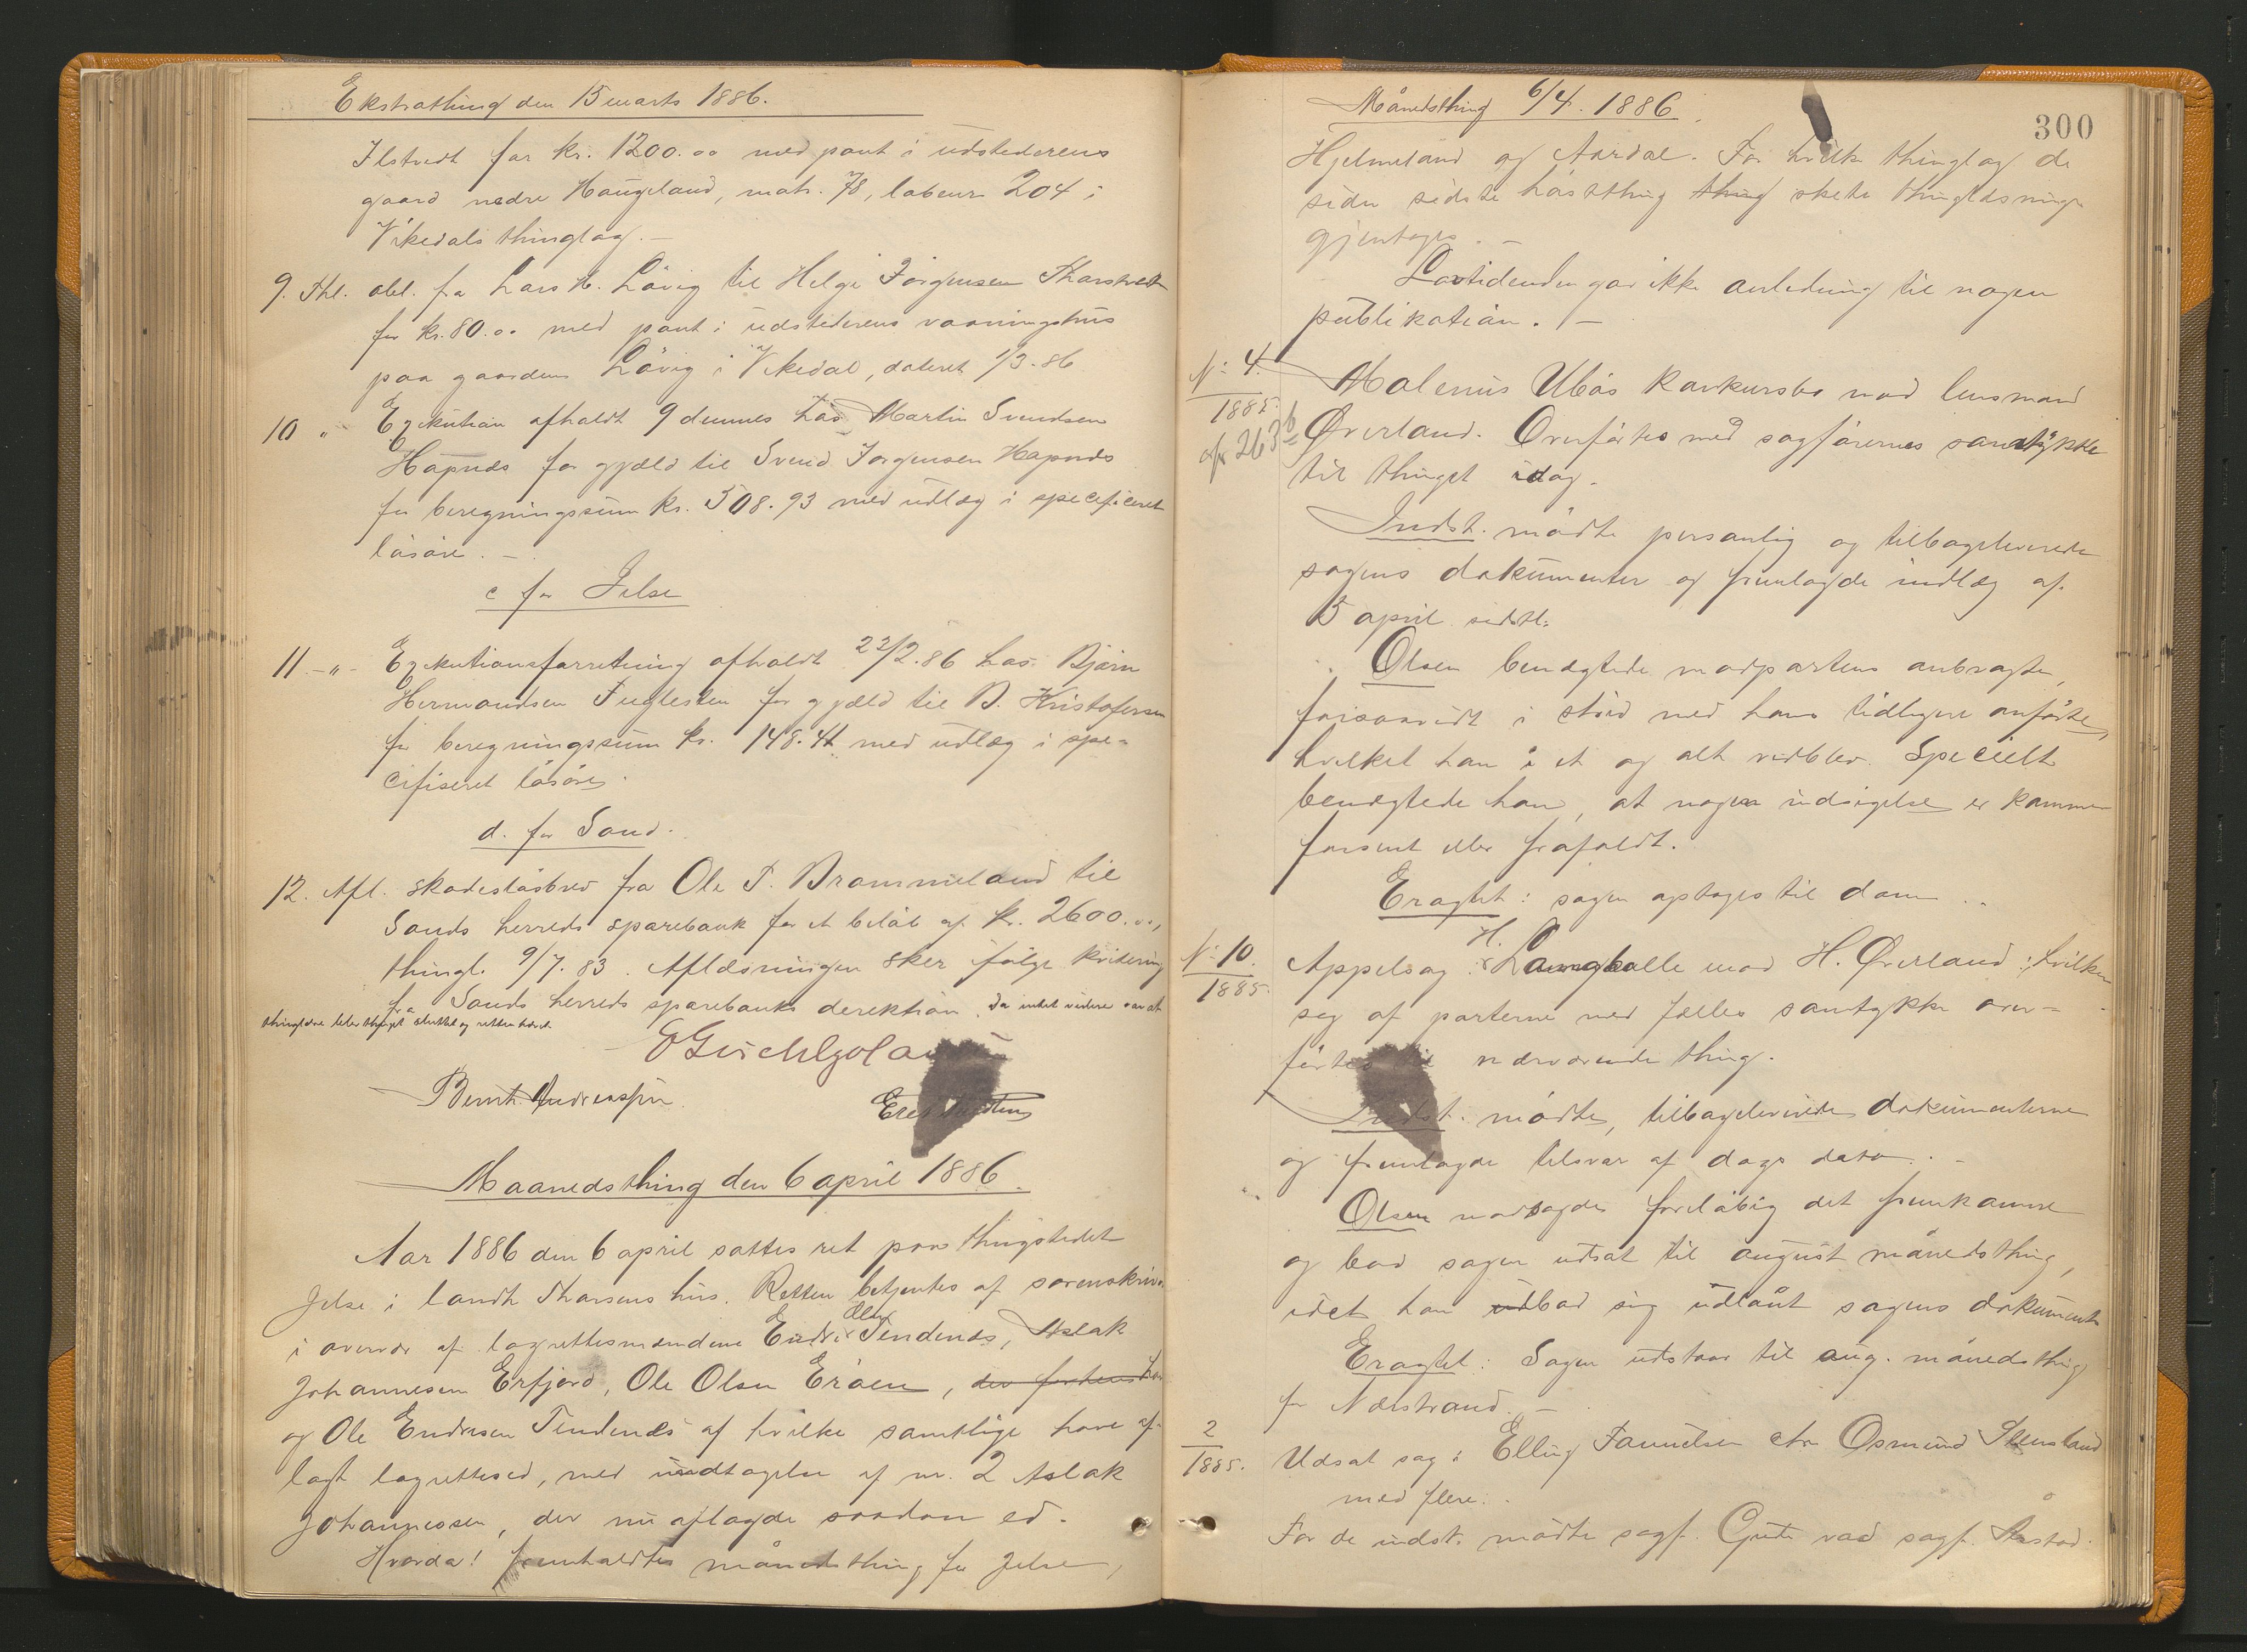 Ekstrathing den 15 marts 1886.
Ilstvedt for kr. 1200.00 med pant i udstederens
gaard nedre Haugeland, matr. 78, løbenr 204 i
Vikedals thinglag. –
9. Thl. obl. fra Lars N. Lövig til Helge Jörgensen Tharstvedt
for kr. 80.00 med pant i udstederens vaaningshus
paa gaarden Lövig i Vikedal, dateret 1/3-86
10 " Exekution afholdt 9 dennes hos Martin Svendsen
Hapnæs for gjæld til Svend Jørgensen Hapnæs
for beregningssum kr. 508.93 med udlæg i specificeret
lösöre. –
c for Jelse
11 – " – Exekutionsforretning afholdt 22/2.86 hos Björn
Hermandsen Fuglesten for gjæld til B. Kristofersen
for beregningssum kr. 148.44 med udlæg i spe-
cifiseret lösöre.
d. for Sand.
12. Afl. skadeslösbrev fra Ole T. Brommeland til
Sands herreds sparebank for et belöb af kr. 2600.00,
thingl. 9/7.83. Aflæsningen sker ifölge kvitering
fra Sands herreds sparebanks direktion. Da intet videre var at
thinglæse blev thinget sluttet og retten hævet
Bernt Andreassen
Maanedsthing den 6 april 1886.
Aar 1886 den 6 april sattes ret paa thingstedet
Jelse i landh. Thorsens hus. Retten betjentes af sorenskriver
i overvær af lagrettesmændene Endre Tendenes, Aslak
Johannesen Erfjord, Ole Olsen Eröen,
og Ole Endresen Tendenes af hvilke samtlige have af-
lagt lagretteed, med undtagelse af nr. 2 Aslak
Johannessen, der nu aflagde saadan ed.
Hvorda! fremholdtes månedsthing for Jelse,
Månedsthing 6/4. 1886.
300
Hjelmeland og Aardal. For hvilke thinglag de
siden sidste höstthing thing skete thinglæsninger
gjentoges. –
Lovtidenden gav ikke anledning til nogen
publikation. –
No. 4.
1885.
cfr 263 b
Malenius Ubös konkursbo mod lensmand
Øverland. Overförtes med sagförernes samtykke
til thinget idag.
Indst. mödte personlig og tilbageleverede
sagens dokumenter og fremlagde indlæg af
5 april sidstl.
Olsen benægtede modpartens anbragte,
forsaavidt i strid med hans tidligere anförte,
hvilket han i et og alt vedblev. Specielt
benægtede han, at nogen indsigelse er kommen
forsent eller frafaldt.
Eragtet: sagen optages til dom..
No. 10.
1885.
Appelsag: H. Langballe mod H. Øverland: hvilken
sag af parterne med fælles samtykke over-
förtes til nærværende thing.
Indst. mödte, tilbageleverede dokumenterne
og fremlagde tilsvar af dags dato. –
Olsen modsagde foreløbig det fremkomne
og bad sagen udsat til august månedsthing,
idet han udbad sig udlånt sagens dokumenter
Eragtet: Sagen udstaar til aug. månedsthing
for Nærstrand. –
2
1885.
Udsat sag: Elling Samuelsen ctr. Osmund Steensland
med flere.
For de indst. mödte sagf. Gude ved sagf. Årstad.